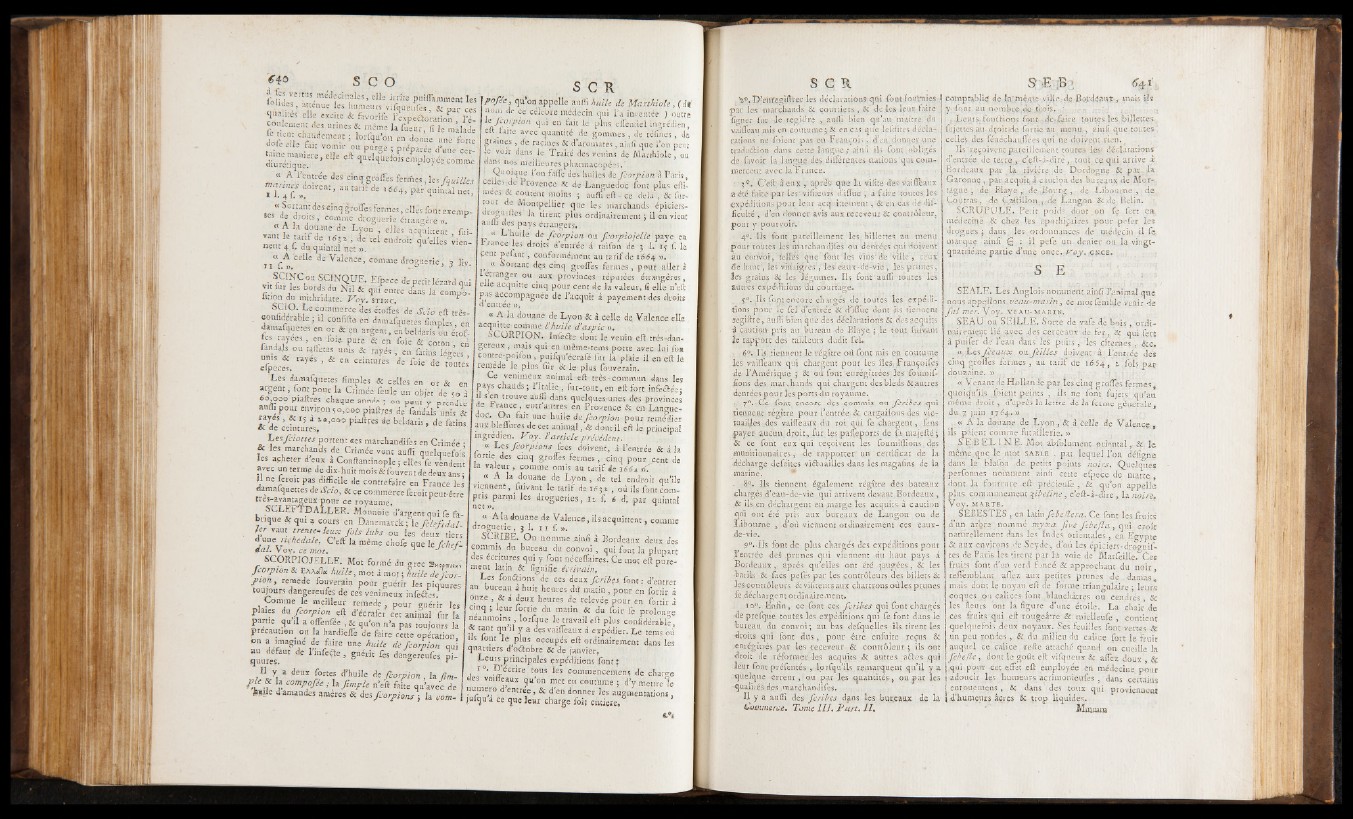 640 S C O
à ses vertus médécinales, elle irrite puissamment les
solides, atténue les humeurs visqueuses, & par ces
qualités elle excite & favorise l'expectoration, l'é-
coulement des urines & même la sueur, si le malade
se tient chaudement ; lorsqu'on en donne une forte
dose elle fait vomir ou purge ; préparée d'une cer-
taine maniere, elle est quelquefois employée comme
diurétique.
« A l'entrée des cinq grosses fermes, les squilles
marines doivent, au tarif de 1664, par quintal net,
1 l. 4 s. ».
« Sortant des cinq grosses fermes, elles sont exemp-
ses de droits, comme droguerie étrangère ».
« A la douane de Lyon, elles acquittent, sui-
vant le tarif de 1632, de tel endroit qu'elles vien-
nent 4 s. du quintal net ».
« A celle de Valence, comme droguerie, 3 liv.
11 s. ».
SCINC ou SCINQUE. Espece de petit lézard qui
vit sur les bords du Nil & qui entre dans la compo-
sition du mithridate. Voy. STINC.
SCIO. Le commerce des étoffes de Scio est très-
considérable ; il consiste en damasquetes simples, en
damasquetes en or & en argent, en beldaris ou étof-
fes rayées, en soie pure & en soie & coton, en
sandals ou taffetas unis & rayés, en satins légers,
unis & rayés, & en ceintures de soie de toutes
especes.
Les damasquetes simples & celles en or & en
argent, font pour la Crimée seule un objet de 50 à
60,000 piastres chaque année ; on peut y prendre
aussi pour environ 50,000 piastres de sandals unis &
rayés, & 15 à 20,000 piastres de beldaris, de satins
& de ceintures.
Les sciottes portent ces marchandises en Crimée ;
& les marchands de Crimée vont aussi quelquefois
les acheter d'eux à Constantinople ; elles se vendent
avec un terme de dix-huit mois & souvent de deux ans ;
il ne seroit pas difficile de contrefaire en France les
damasquettes de Scio, & ce commerce seroit peut-être
très-avantageux pour ce royaume.
SCLEFTDALLER. Monnoie d'argent qui se fa-
brique & qui a cours en Danemarck ; le scleftdal-
ler vaut trente-deux sols lubs ou les deux tiers
d'une richedale. C'est la même chose que le schef-
dal. Voy. ce mot.
SCORPIOJELLE. Mot formé du grec
scorpion & huile, mot à mot ; huile de scor-
pion, remede souverain pour guérir les piquures
toujours dangereuses de ces vénimeux insectes.
Comme le meilleur remede, pour guérir les
plaies du scorpion est d'écraser cet animal sur la
partie qu'il a offensée, & qu'on n'a pas toujours la
précaution ou la hardiesse de faire cette opération,
on a imaginé de faire une huile de scorpion qui
au défaut de l'insecte, guérit ses dangereuses pi-
quures.
Il y a deux sortes d'huile de scorpion, la sim-
ple & la composée ; la simple n'est faite qu'avec de
l'huile d'amandes amères & des scorpions ; la com-
S C R
posée, qu'on appelle aussi huile de Marthiole, (du
nom de ce célebre médecin qui l'a inventée ) outre
le scorpion qui en fait le plus essentiel ingrédien,
est faite avec quantité de gommes, de résines, de
graines, de racines & d'aromates, ainsi que l'on peut
le voir dans le Traité des venins de Marthiole, ou
dans nos meilleures pharmacopées.
Quoique l'on fasse des huiles de scorpion à Paris,
celles de Provence & de Languedoc sont plus esti-
mées & coutent moins ; aussi est-ce delà, & sur-
tout de Montpellier que les marchands épiciers-
droguistes la tirent plus ordinairement ; il en vient
aussi des pays étrangers.
« L'huile de scorpion ou scorpiojelle paye en
France les droits d'entrée à raison de 3 l. 15 s. le
cent pesant, conformément au tarif de 1664 ».
« Sortant des cinq grosses fermes, pour aller à
l'étranger ou aux provinces réputées étrangères,
elle acquitte cinq pour cent de la valeur, si elle n'est
pas accompagnée de l'acquit à payement des droits
d'entrée ».
« A la douane de Lyon & à celle de Valence elle
acquitte comme l'huile d'aspic ».
SCORPION. Insecte dont le venin est très-dan-
gereux, mais qui en même-tems porte avec lui son
contre-poison, puisqu'écrasé sur la plaie il en est le
remède le plus sûr & le plus souverain.
Ce venimeux animal est très-commun dans les
pays chauds ; l'Italie, sur-tout, en est fort infectée ;
il s'en trouve aussi dans quelques-unes des provinces
de France, entr'autres en Provence & en Langue-
doc. On fait une huile de scorpion pour remédier
aux blessures de cet animal, & dont il est le principal
ingrédien. Voy. l'article précédent.
« Les scorpions secs doivent, à l'entrée & à la
sortie des cinq grosses fermes, cinq pour cent de
la valeur, comme omis au tarif de 1664 ».
« A la douane de Lyon, de tel endroit qu'ils
viennent, suivant le tarif de 1632, où ils sont com-
pris parmi les drogueries, 12 s. 6 d. par quintal
net ».
« A la douane de Valence, ils acquittent, comme
droguerie, 3 l. 11 s. ».
SCRIBE. On nomme ainsi à Bordeaux deux des
commis du bureau du convoi, qui font la plupart
des écritures qui y sont nécessaires. Ce mot est pure-
ment latin & signifie écrivain.
Les fonctions de ces deux scribes sont : d'entrer
au bureau à huit heures du matin, pour en sortir à
onze, & à deux heures de relevée pour en sortir à
cinq ; leur sortie du matin & du soir se prolonge
néanmoins, lorsque le travail est plus considérable,
& tant qu'il y a des vaisseaux à expédier. Le tems où
ils sont le plus occupés est ordinairement dans les
quartiers d'octobre & de janvier.
Leurs principales expéditions sont ;
1°. D'écrire tous les commencemens de charge
des vaisseaux qu'on met en coutume ; d'y mettre le
numero d'entrée, & d'en donner les augmentations,
jusqu'à ce que leur charge soit entiere.
S C R
2°. D'enregistrer les déclarations qui sont fournies
par les marchands & courtiers, & de les leur faire
signer sur le registre, aussi bien qu'au maitre du
vaisseau mis en coutume ; & en cas que lesdites décla-
rations ne soient pas en François, d'en donner une
traduction dans cette langue ; ainsi ils sont obligés
de savoir la langue des différentes nations qui com-
mercent avec la France.
3°. C'est à eux, après que la visite des vaisseaux
a été faite par les visiteurs d'issue, à faire toutes les
expéditions pour leur acquittement, & en cas de dif-
ficulté, d'en donner avis aux receveur & contrôleur,
pour y pourvoir.
4°. Ils font pareillement les billettes au menu
pour toutes les marchandises ou denrées qui doivent
au convoi, telles que sont les vins de ville, ceux
de haut, les vinaigres, les eaux-de-vie, les prunes,
les grains & les légumes. Ils font aussi toutes les
autres expéditions du courtage.
5°. Ils sont encore chargés de toutes les expédi-
tions pour le sel d'entrée & d'issue dont ils tiennent
registre, aussi bien que des déclarations & des acquits
à caution pris au bureau de Blaye ; le tout suivant
le rapport des tailleurs dudit sel.
6°. Ils tiennent le régistre où sont mis en coutume
les vaisseaux qui chargent pour les îles Françoises
de l'Amérique ; & où sont enregistrées les soumis-
sions des marchands qui chargent des bleds & autres
denrées pour les ports du royaume.
7°. Ce sont encore des commis ou scribes qui
tiennent régistre pour l'entrée & cargaisons des vic-
tuailles des vaisseaux du roi qui se chargent, sans
payer aucun droit, sur les passeports de sa majesté ;
& ce sont eux qui reçoivent les soumissions des
munitionnaires, de rapporter un certificat de la
décharge desdites victuailles dans les magasins de la
marine.
8°. Ils tiennent également régistre des bateaux
chargés d'eau-de-vie qui arrivent devant Bordeaux,
& ils en déchargent en marge les acquits à caution
qui ont été pris aux bureaux de Langon ou de
Libourne, d'où viennent ordinairement ces eaux-
de-vie.
9°. Ils sont de plus chargés des expéditions pour
l'entrée des prunes qui viennent du haut pays à
Bordeaux, après qu'elles ont été jaugées, & les
barils & sacs pesés par les contrôleurs des billets &
les contrôleurs & visiteurs aux chartrons où les prunes
se déchargent ordinairement.
10°. Enfin, ce sont ces scribes qui sont chargés
de presque toutes les expéditions qui se font dans le
bureau du convoi ; au bas desquelles ils tirent les
droits qui sont dus, pour être ensuite reçus &
enrégistrés par les receveur & contrôleur ; ils ont
droit de réformer les acquits & autres actes qui
leur sont présentés, lorsqu'ils remarquent qu'il y a
quelque erreur, ou par les quantités, ou par les
qualités des marchandises.
Il y a aussi des scribes dans les bureaux de la
Commerce. Tome III. Part. II.
S E B 641
comptablie de la même ville de Bordeaux, mais ils
y sont au nombre de trois.
Leurs fonctions sont de faire toutes les billettes
sujettes au droit de sortie au menu, ainsi que toutes
celles des sénéchaussées qui ne doivent rien.
Ils reçoivent pareillement toutes les déclarations
d'entrée de terre, c'est-à-dire, tout ce qui arrive à
Bordeaux par la rivière de Dordogne & par la
Garonne, par acquit à caution des bureaux de Mor-
tagne, de Blaye, de Bourg, de Libourne, de
Coutras, de Castillon, de Langon & de Belin.
SCRUPULE. Petit poids dont on se sert en
médecine & chez les apothicaires pour peser les
drogues ; dans les ordonnances de médecin il se
marque ainsi ℈ : il pese un denier ou la vingt-
quatrième partie d'une once. Voy. ONCE.
S E
SEALE. Les Anglois nomment ainsi l'animal que
nous appellons veau-marin, ce mot semble venir de
sal mer. Voy. VEAU-MARIN.
SEAU ou SEILLE. Sorte de vase de bois, ordi-
nairement lié avec des cerceaux de fer, & qui sert
à puiser de l'eau dans les puits, les citernes, &c.
« Les sceaux ou seilles doivent à l'entrée des
cinq grosses fermes, au tarif de 1664, 2 sols par
douzaine. »
« Venant de Hollande par les cinq grosses fermes,
quoiqu'ils soient peints, ils ne sont sujets qu'au
même droit, d'après la lettre de la ferme générale,
du 7 juin 1764. »
« A la douane de Lyon, & à celle de Valence,
ils paient comme futaillerie. »
SEBELINE. Mot absolument oriental, & le
même que le mot SABLE, par lequel l'on désigne
dans le blason de petits points noirs. Quelques
personnes nomment ainsi cette espece de martre,
dont la fourrure est précieuse, & qu'on appelle
plus communément zibeline, c'est-à-dire, la noire.
Voy. MARTE.
SEBESTES, en latin sebestena. Ce sont les fruits
d'un arbre nommé myxa sive sebesta, qui croît
naturellement dans les Indes orientales, en Egypte
& aux environs de Seyde, d'où les épiciers-droguis-
tes de Paris les tirent par la voie de Marseille. Ces
fruits sont d'un verd foncé & approchant du noir,
ressemblant assez aux petites prunes de damas,
mais dont le noyau est de forme triangulaire ; leurs
coques ou calices sont blanchâtres ou cendrés, &
les fleurs ont la figure d'une étoile. La chair de
ces fruits qui est rougeâtre & mielleuse, contient
quelquefois deux noyaux. Ses feuilles sont vertes &
un peu rondes, & du milieu du calice sort le fruit
auquel ce calice reste attaché quand on cueille la
sebeste, dont le goût est visqueux & assez doux, &
qui pour cet effet est employée en médecine pour
adoucir les humeurs acrimonieuses, dans certains
enrouemens, & dans des toux qui proviennent
d'humeurs âcres & trop liquides.
Mmmm